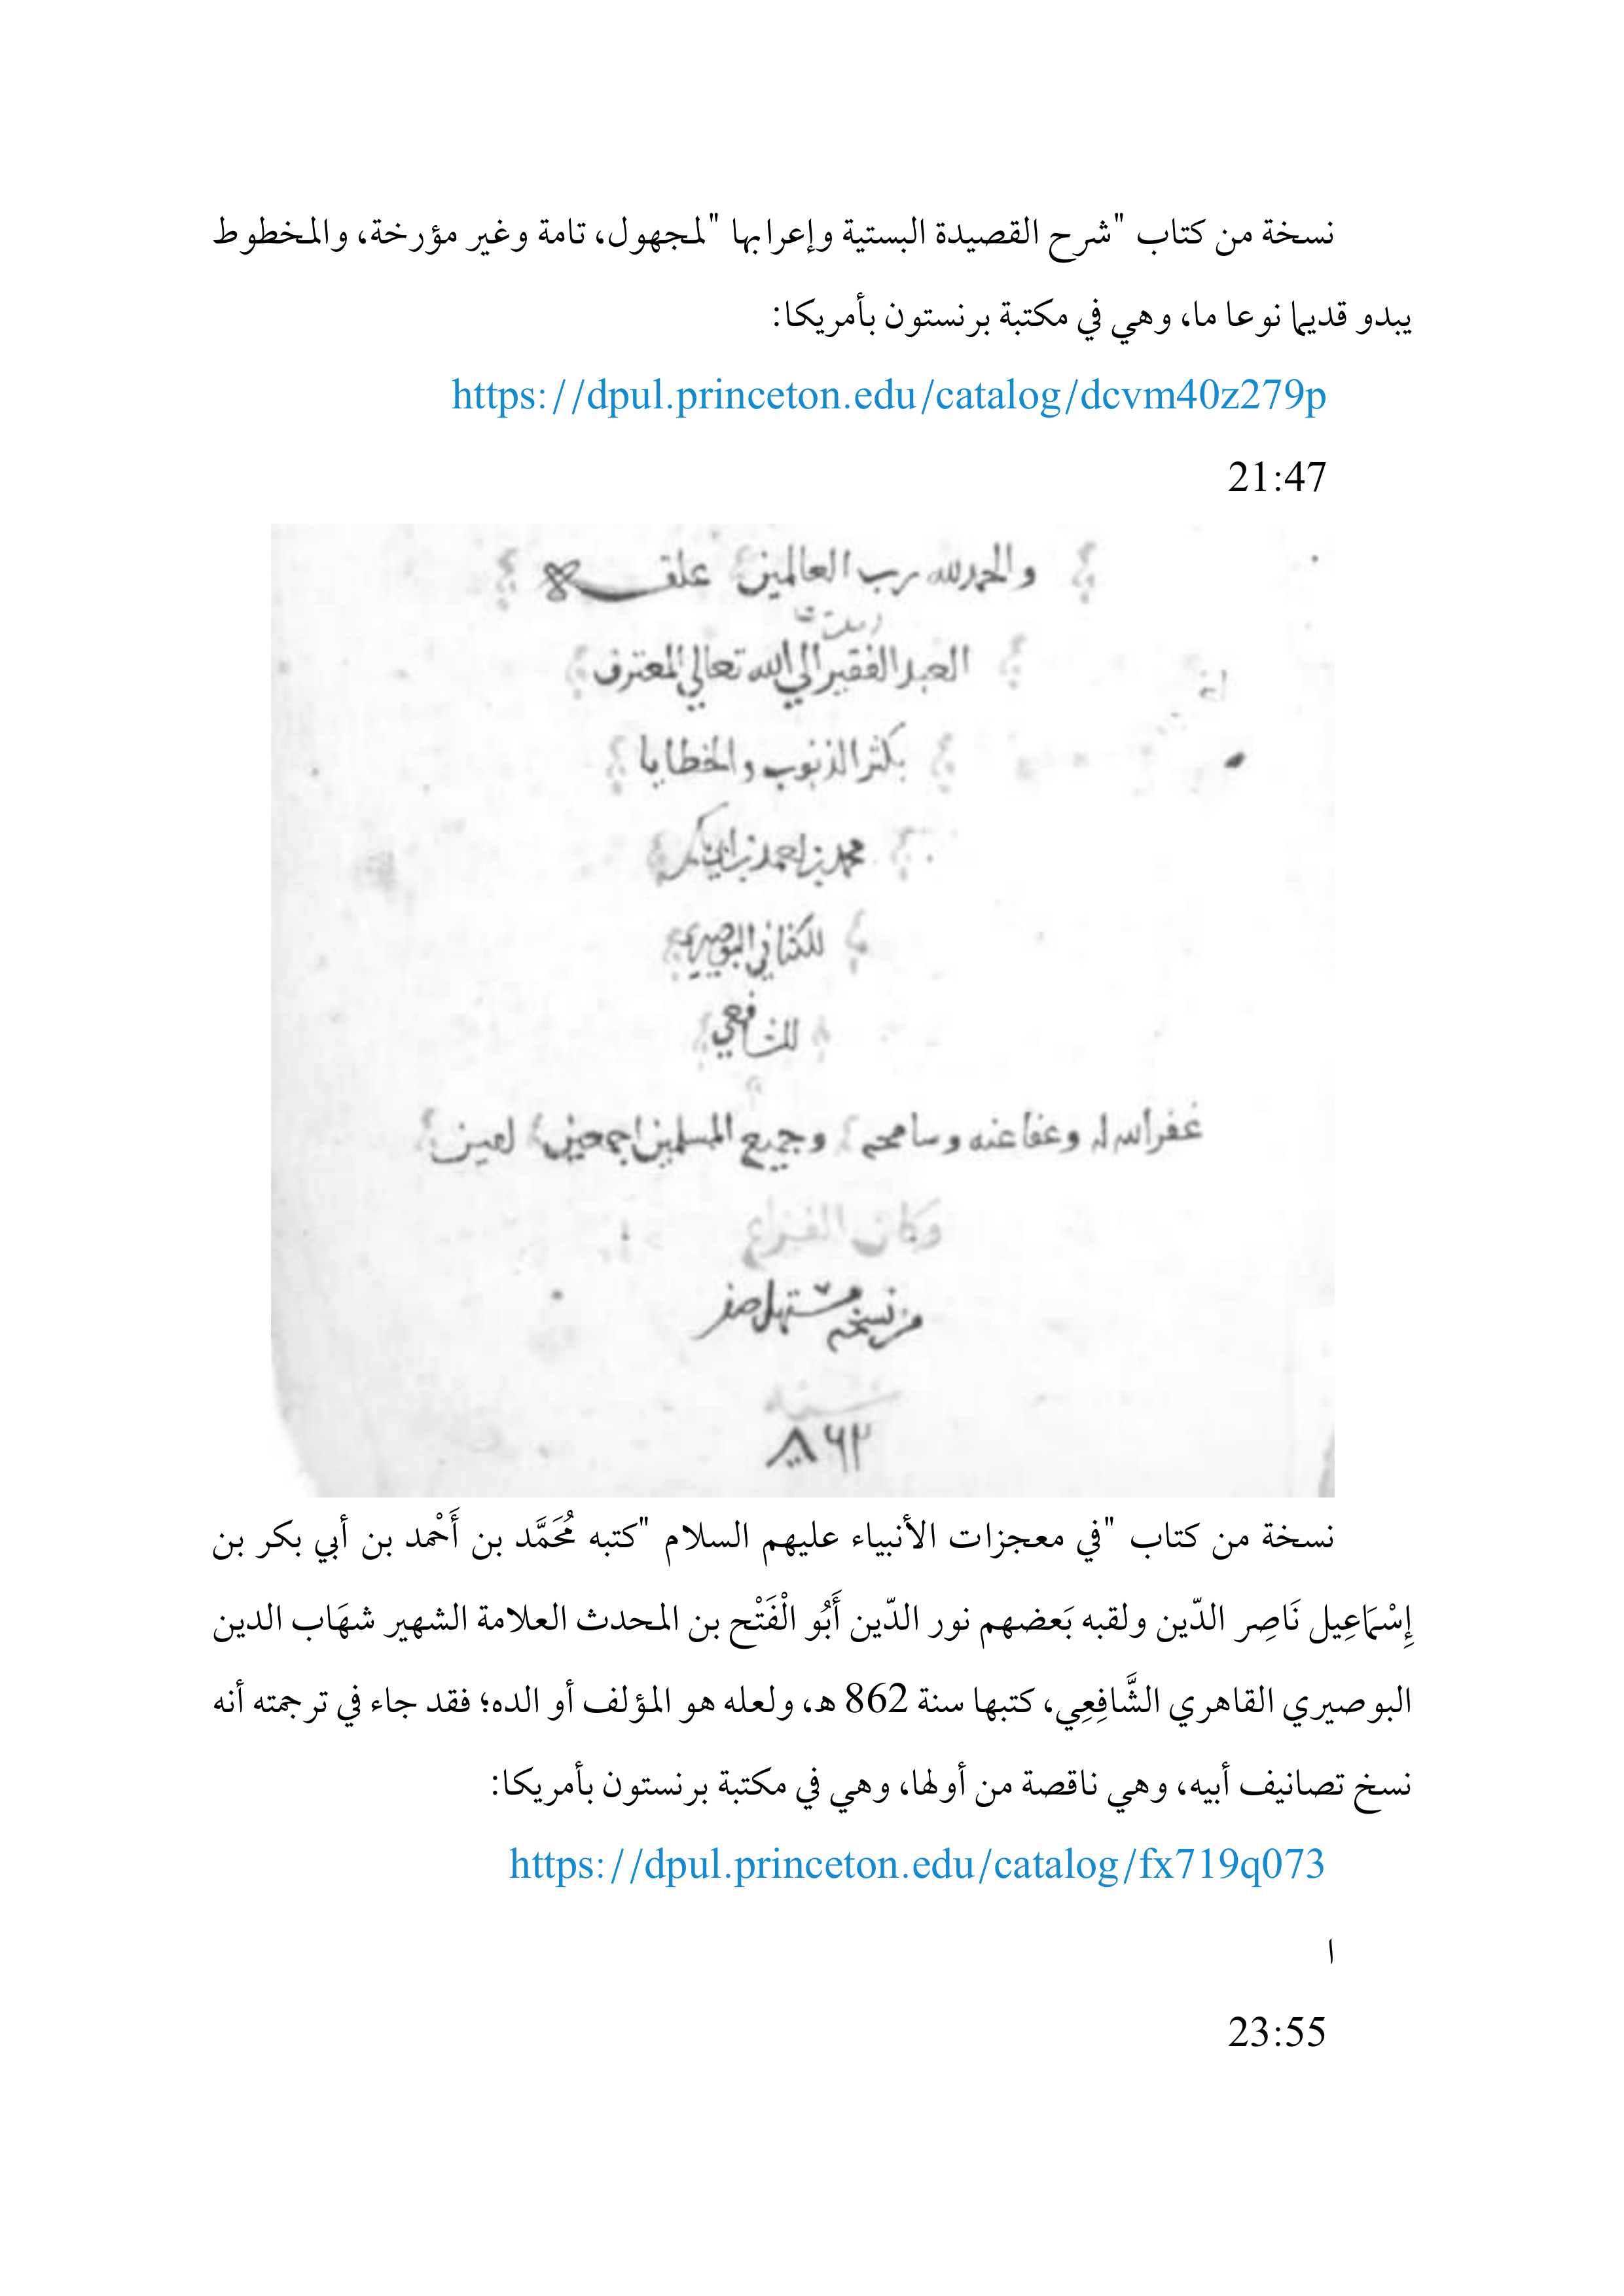 نسخة من كتاب "شرح القصيدة البستية وإعرابها "لمجهول، تامة وغير مؤرخة، والمخطوط
يبدو قديما نوعا ما، وهي في مكتبة برنستون بأمريكا:
https://dpul.princeton.edu/catalog/dcvm40z279p
21:47
والحمد لله رب العالمين علقه
العبد الفقير الي الله تعالي المعترف
بكثر الذنوب والخطايا
محمد بن احمد بن ابي بكر
الكناني البوصيري
الشافعي
غفر الله له وعفا عنه وسامحه وجميع المسلمين اجمعين امين
وكان الفراغ
من نسخه مستهل صفر
سنة
٨٦٢
نسخة من كتاب "في معجزات الأنبياء عليهم السلام "كتبه مُحَمَّد بن أَحْمد بن أبي بكر بن
إِسْمَاعِيل نَاصِر الدّين ولقبه بَعضهم نور الدّين أَبُو الْفَتْح بن المحدث العلامة الشهير شهَاب الدين
البوصيري القاهري الشَّافِعِي، كتبها سنة 862 ه، ولعله هو المؤلف أو الده؛ فقد جاء في ترجمته أنه
نسخ تصانيف أبيه، وهي ناقصة من أولها، وهي في مكتبة برنستون بأمريكا:
https://dpul.princeton.edu/catalog/fx719q073
ا
23:55